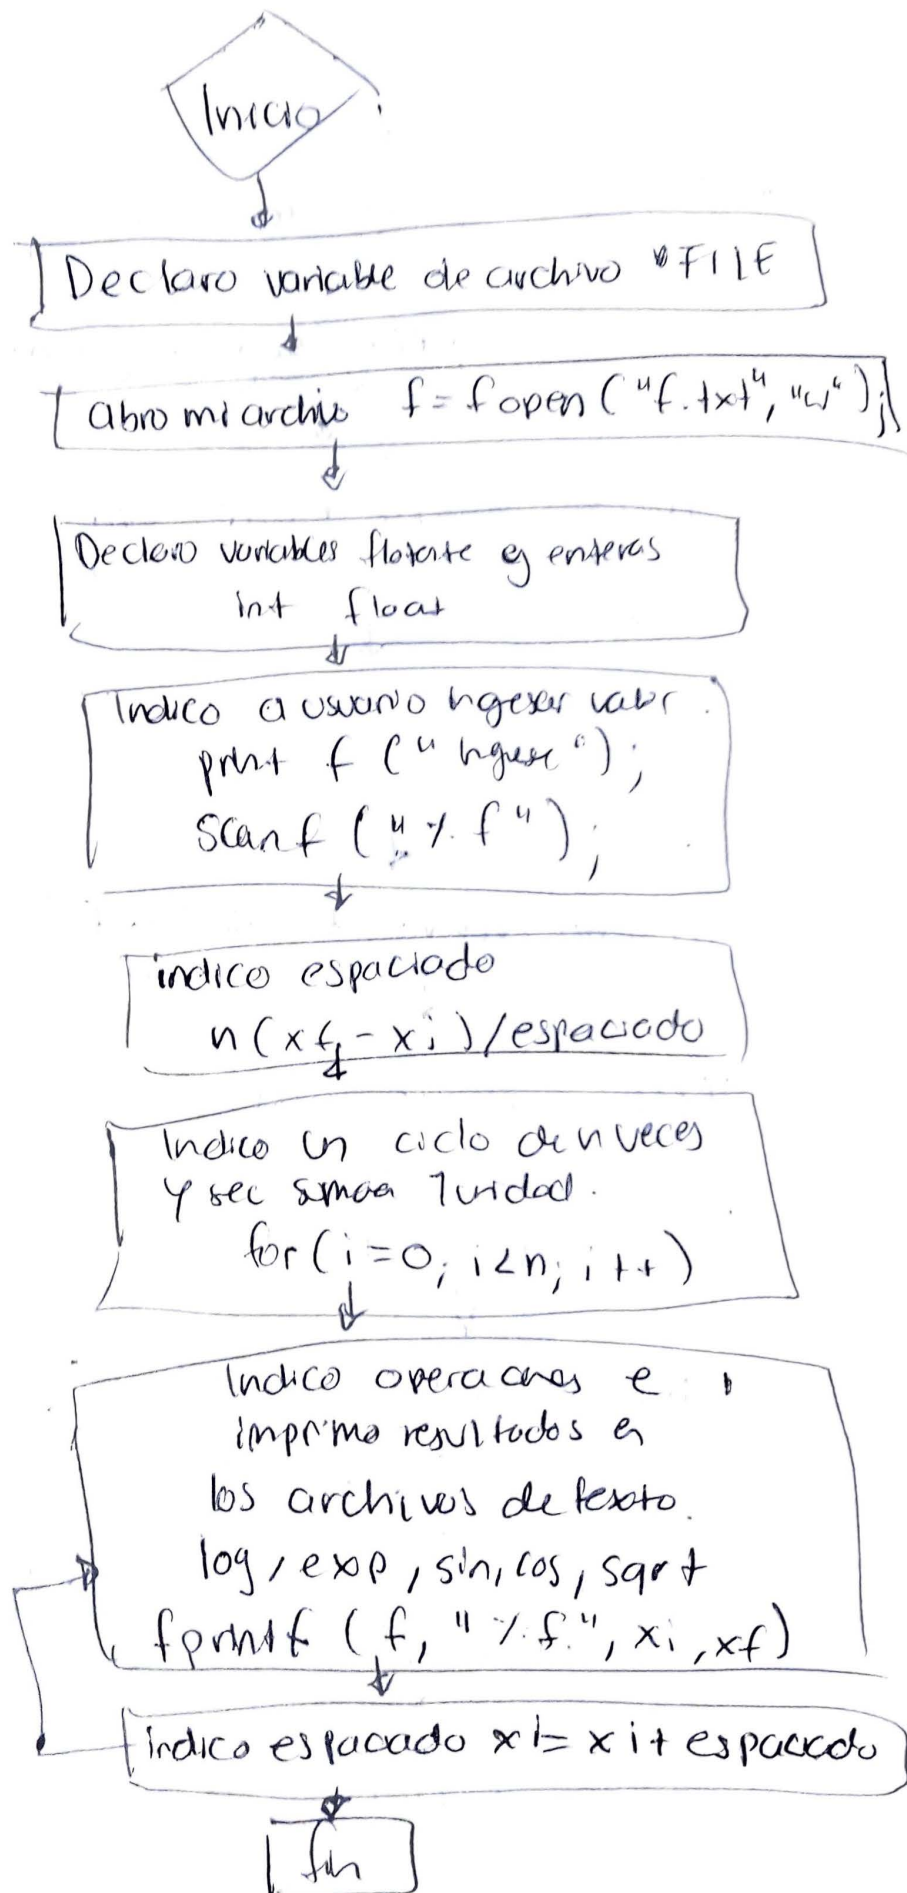 Inicio
Declaro variable de archivo *FILE
abro mi archivo f=fopen("f.txt","w");
Declaro variables flotante y enteras
int float
Indico a usuario ingresar valor.
printf ("ingrese");
scanf ("%f");
indico espaciado
n(xf-xi)/espaciado
Indico un ciclo de n veces
y se suma 1 unidad.
for(i=0; i<n; i++)
Indico operaciones e
imprimo resultados en
los archivos de texto.
log, exp, sin, cos, sqrt
fprintf (f, "%f.", xi, xf)
indico espaciado xi=xi+espaciado
fin